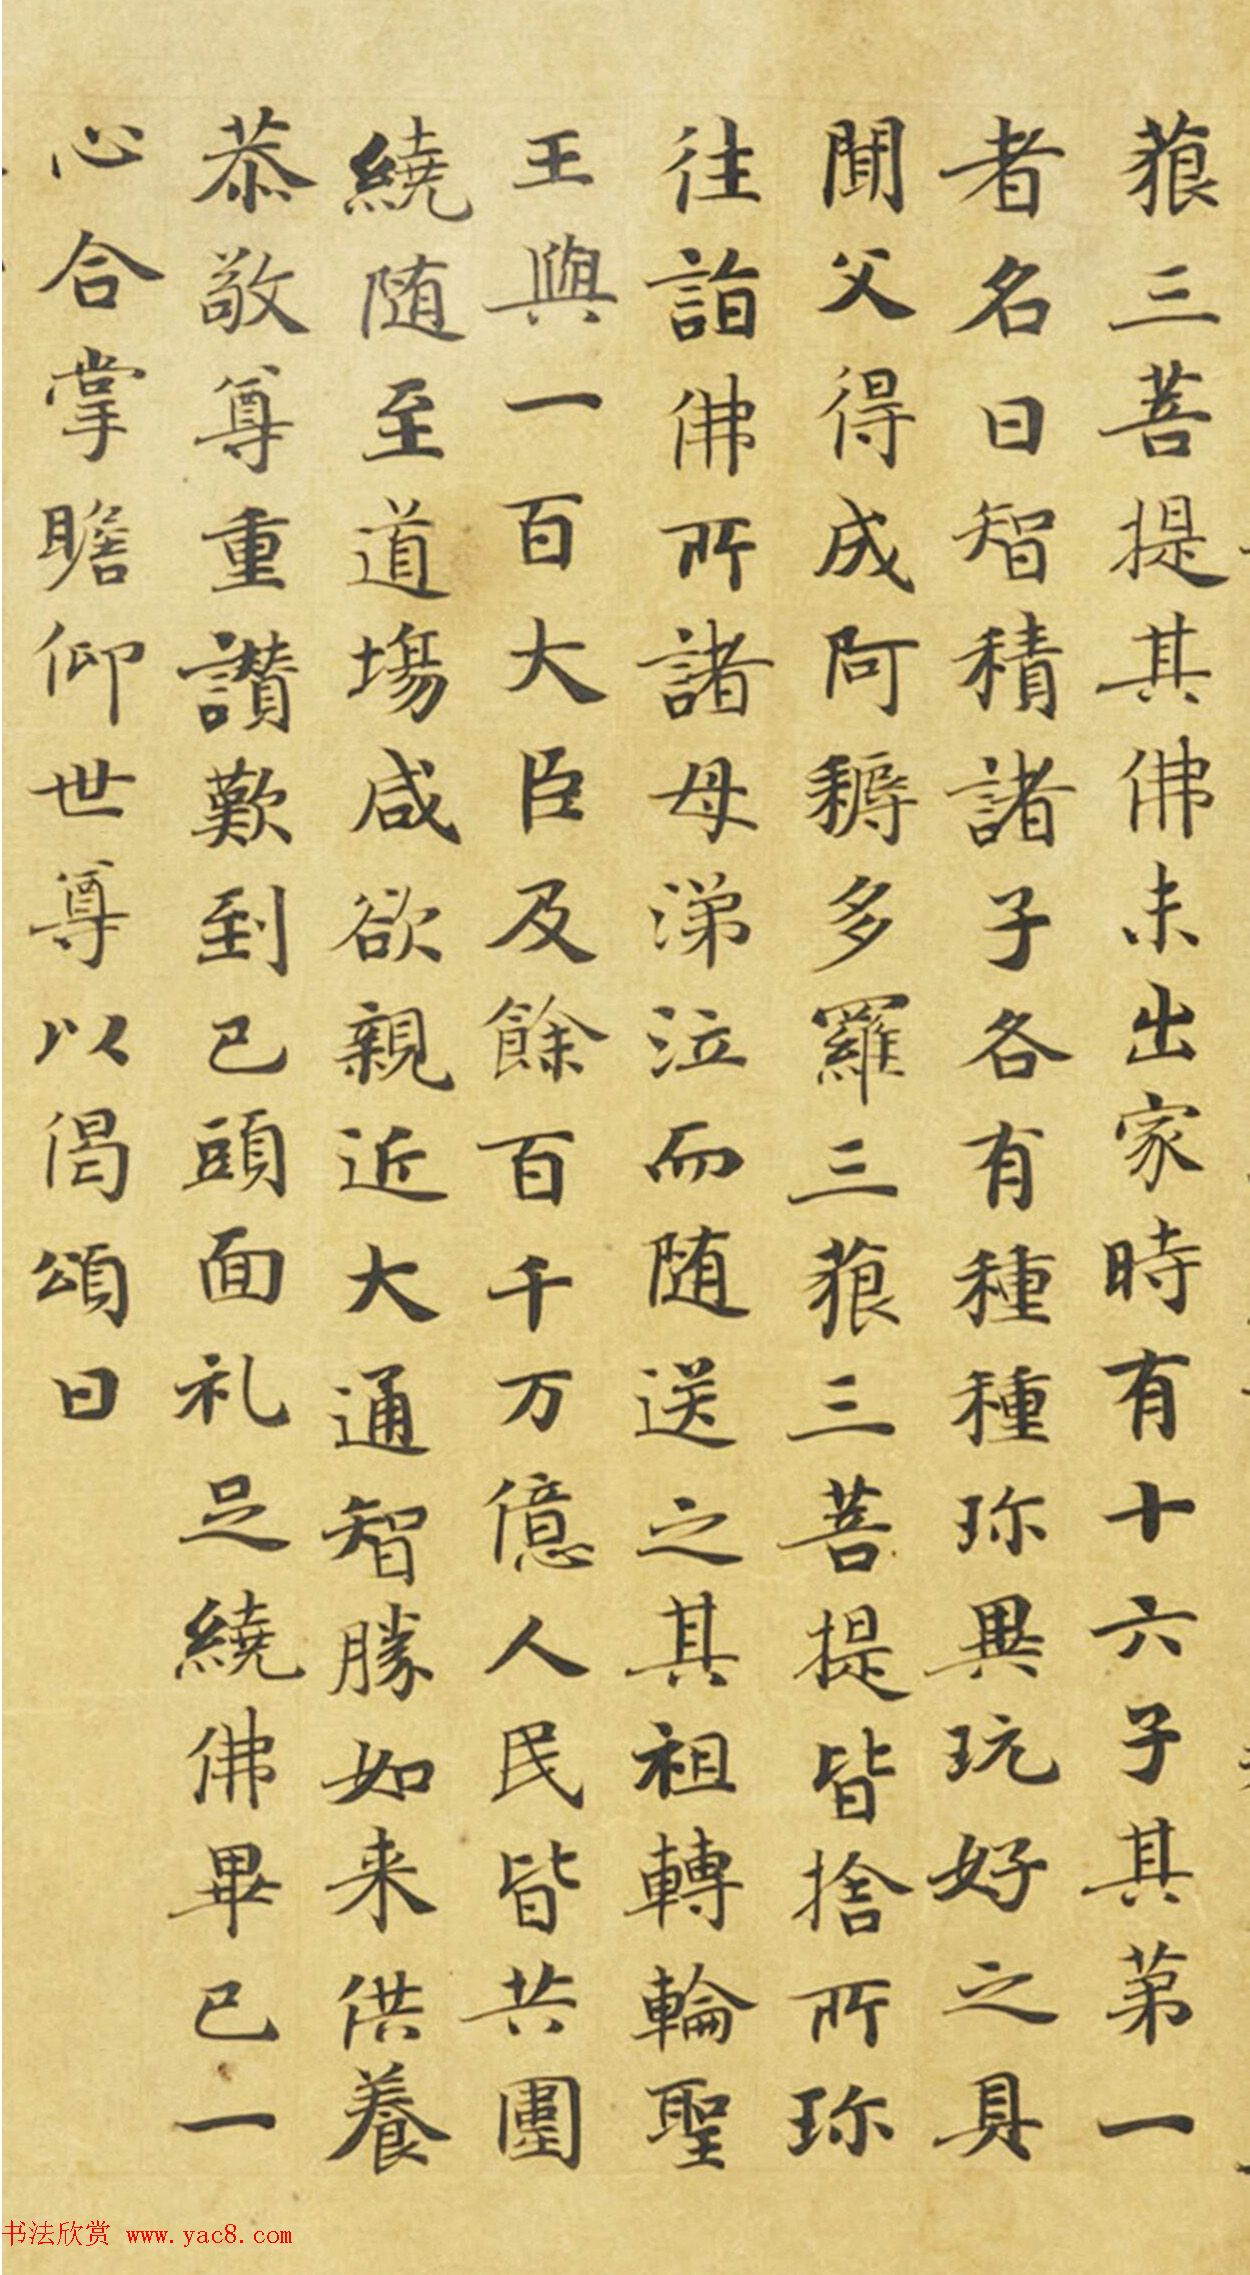 藐三菩提其佛未出家時有十六子其第一
者名曰智積諸子各有種種珎異玩好之具
聞父得成阿耨多羅三藐三菩提皆捨所珎
往詣佛所諸母涕泣而随送之其祖轉輪聖
王與一百大臣及餘百千万億人民皆共圍
繞随至道塲咸欲親近大通智勝如来供養
恭敬尊重讃歎到已頭面礼足繞佛畢已一
心合掌瞻仰世尊以偈頌曰
书法欣赏 www.yac8.com